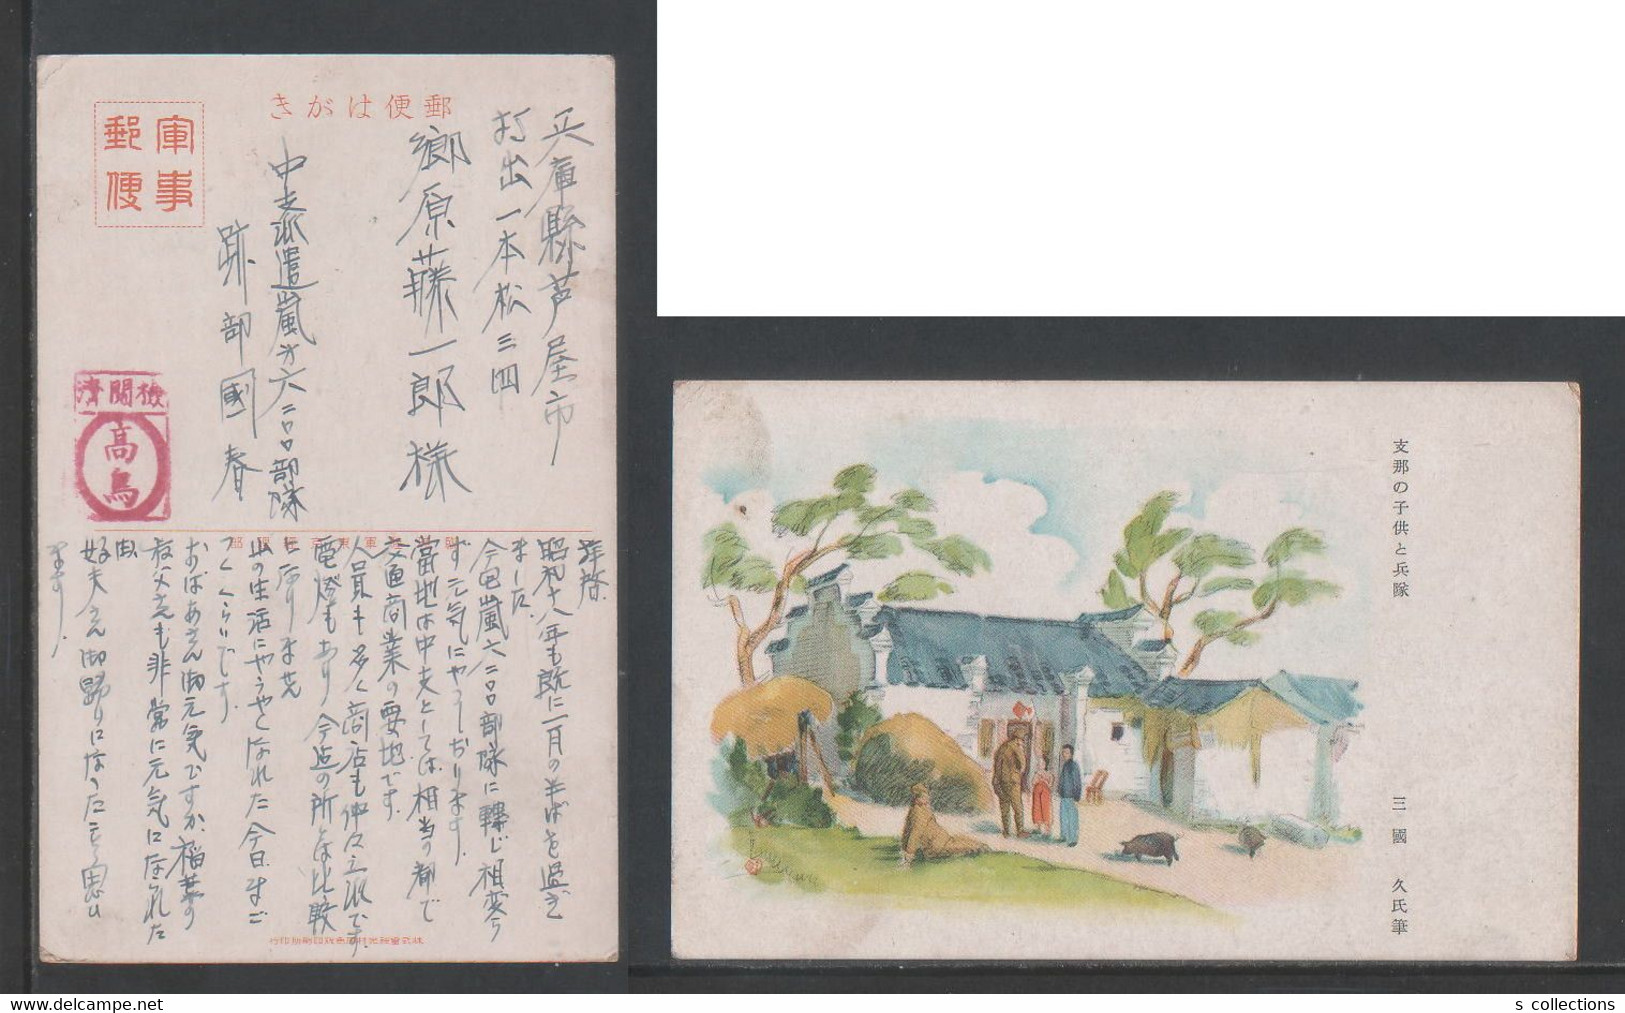 郵便はがき
軍事
郵便
兵庫縣芦屋市
打出一本松三四
郷原藤一郎様
中支派遣嵐第六二〇〇部隊
跡部國春
検閲済
高鳥
拝啓
昭和十八年も既に一月の半ばを過ぎ
ました。
今屯嵐六二〇〇部隊に轉じ相変ら
ず元気にやっております。
當地は中支としては相当の都で
交通商業の要地です。
人員も多く商店も仲々立派です。
電燈もあり今迄の所とは比較
になりません
山の生活にやうやくなれた今日まご
つくくらいです。
おばあさん御元気ですか、稲葉の
叔父さんも非常に元気になられた
由
好夫さん御帰りになったと思ひ
ます。
支那の子供と兵隊
三國 久氏筆
s collections